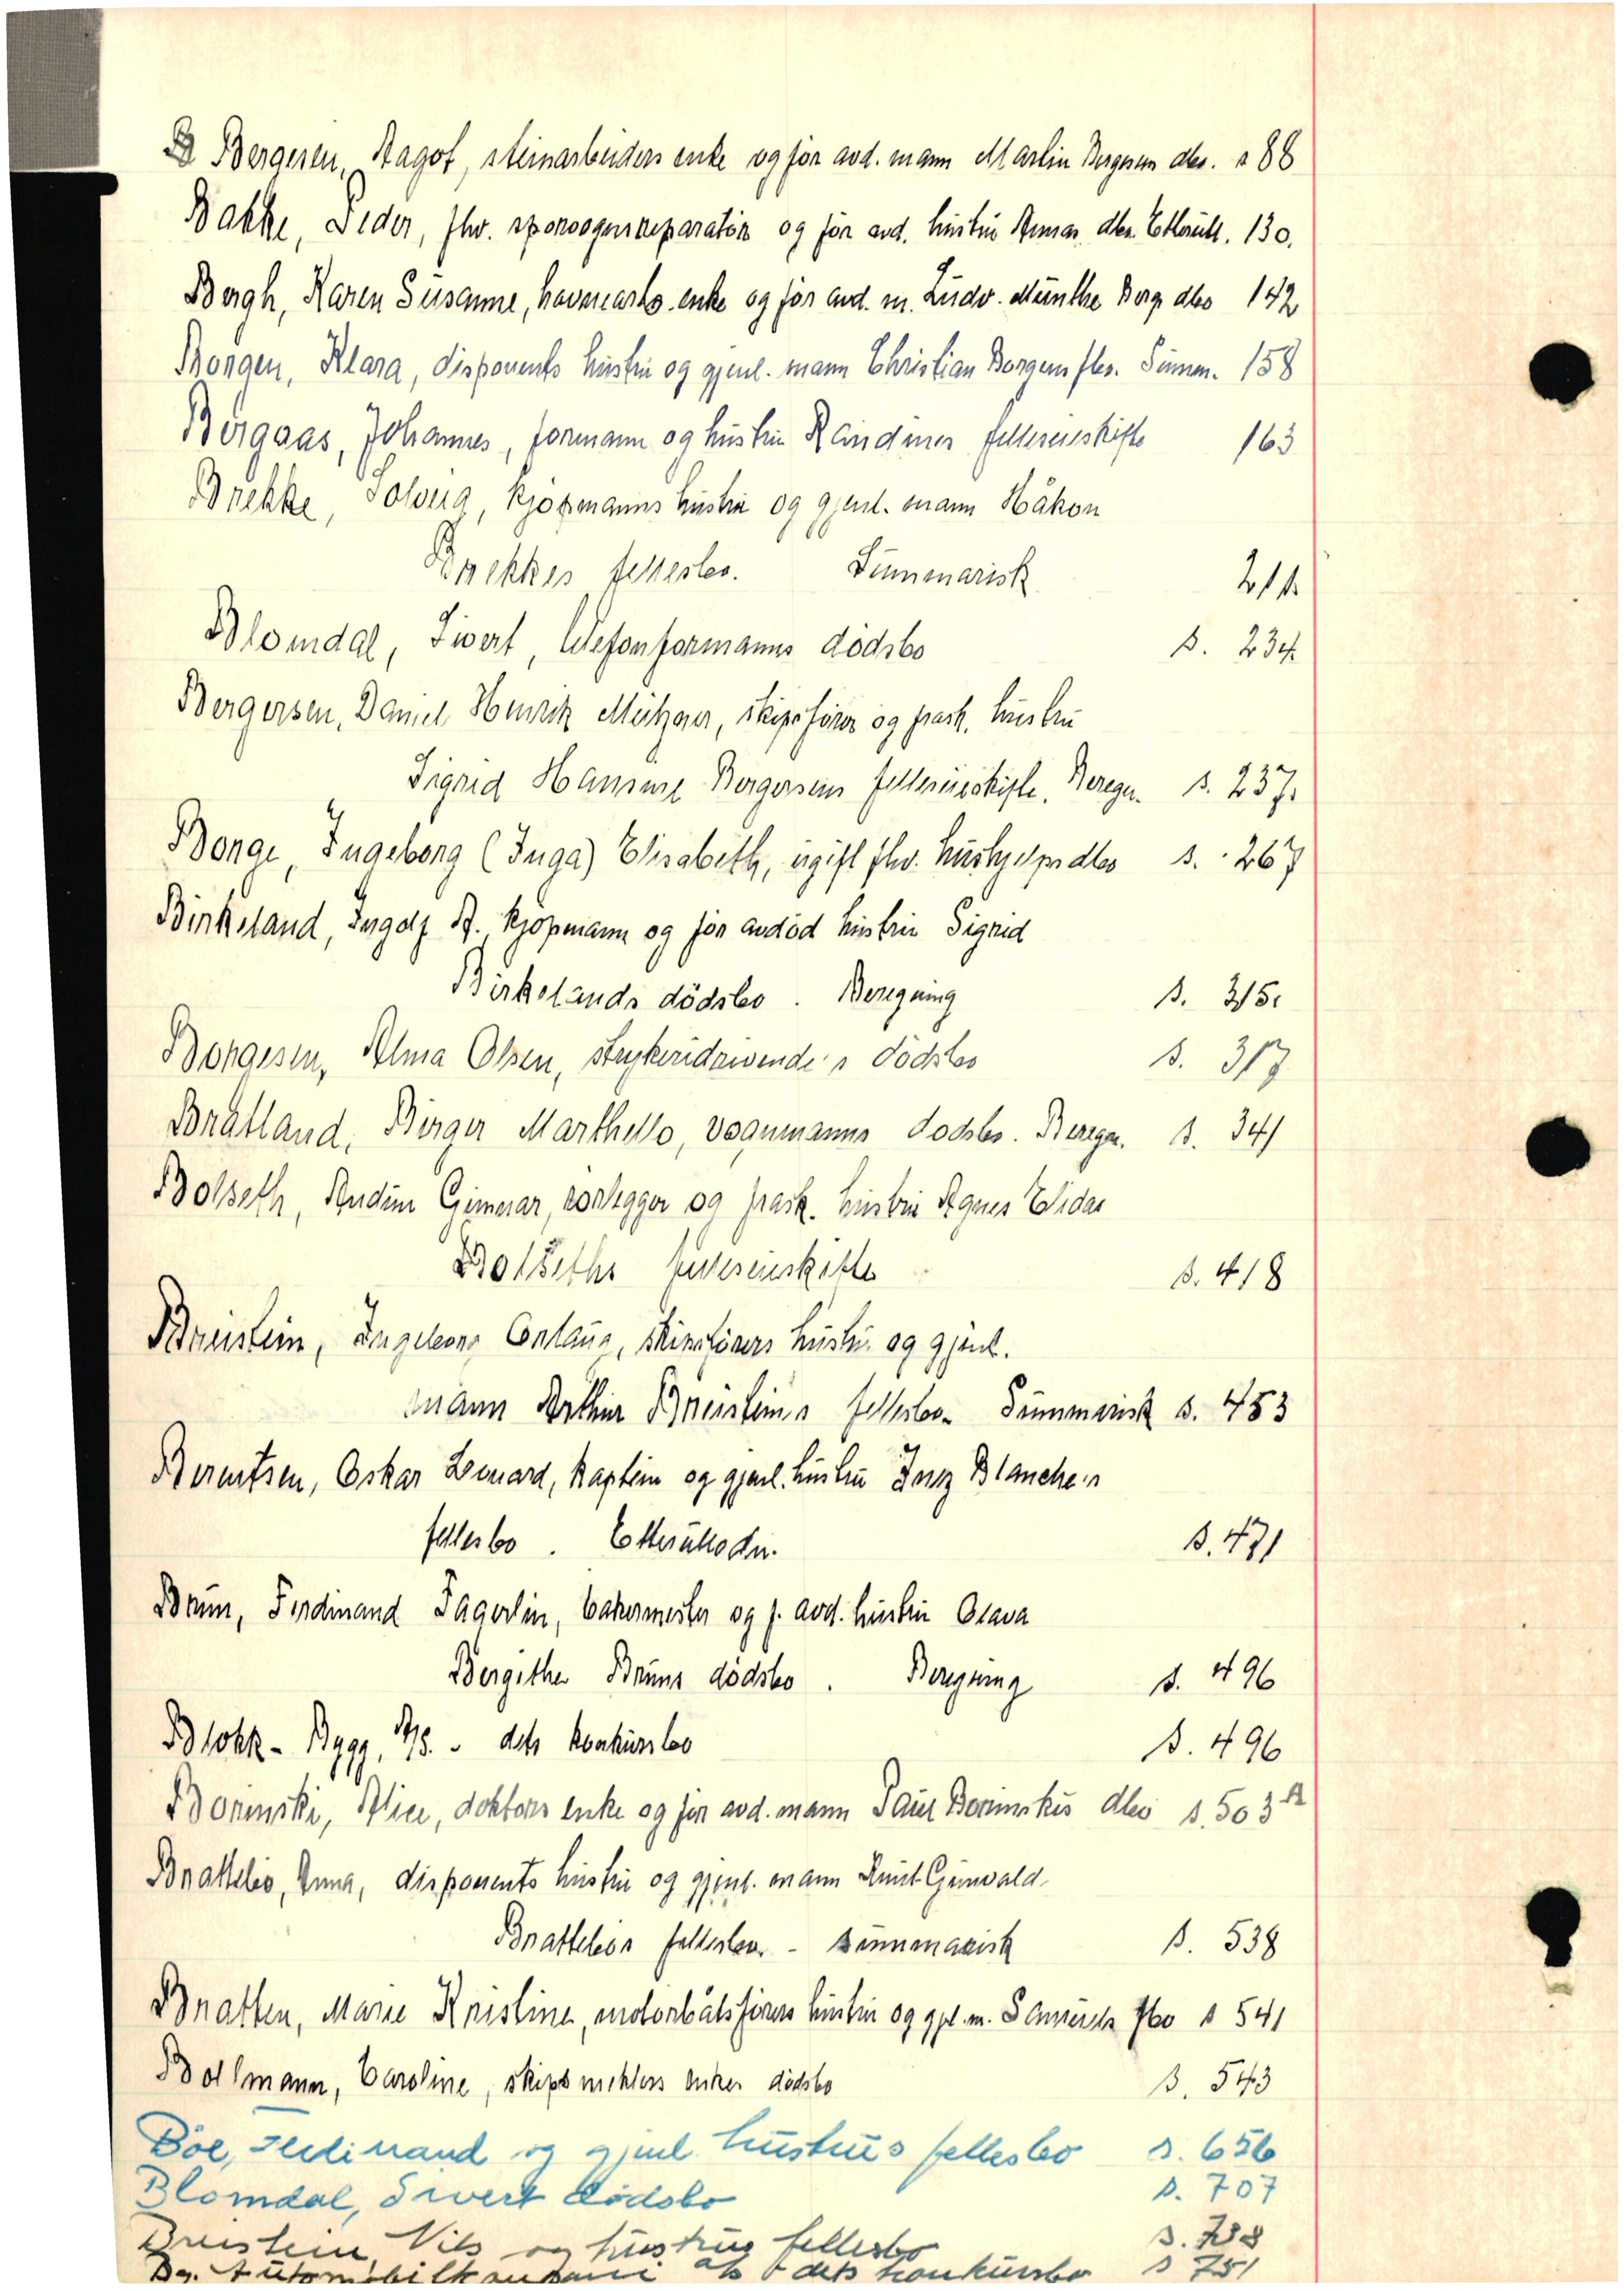 Bergesen, Ragot, steinarbeiders enke og før avd. mann Martin Bergesens dbo. s 88
Bakke, Peder, fhv. sporvognsreparatør og før avd. hustru Annas dbo. Etterutl. 130.
Bergh, Karen Susanne, havnearb. enke og før avd. m. Ludv. Münthe Berg dbo 142
Borgen, Klara, disponents hustru og gjenl. mann Christian Borgens fbo. Summ. 158
Bergaas, Johannes, formann og hustru Randines felleseieskifte 163
Brekke, Solveig, kjøpmanns hustru og gjenl. mann Håkon
Brekkes fellesbo. Summarisk 211
Blomdal, Sivert, telefonformanns dödsbo s. 234
Bergersen, Daniel Henrik, skipsfører og frask. hustru
Sigrid Hansine Bergersens felleseieskifte. Beregn. s. 237.
Borge, Ingeborg (Inga) Elisabeth, ugift fhv. hushjelps dbo s. 267
Birkeland, Ingolf A., kjøpmann og før avdöd hustru Sigrid
Birkelands dödsbo. Beregning s. 315.
Borgesen, Alma Olsen, strykeridrivende's dödsbo s. 317
Bratland, Birger Marthello, vognmanns dodsbo. Beregn. s. 341
Bolseth, Audun Gunnar, rørlegger og frask. hustru Agnes Elidas
Bolseths felleseieskifte s. 418
Breistein, Ingeborg Ontaug, skipsførers hustru og gjenl.
mann Arthur Breistein's fellesbo. Summarisk s. 453
Berentsen, Oskar Leonard, kaptein og gjenl. hustru Inez Blanche's
fellesbo. Etterutlodn. s. 471
Brun, Ferdinand Fagerlin, bakermester og f. avd. hustru Olava
Bergithe Bruns dödsbo. Beregning s. 496
Blokk-Bygg, A/S. - dets konkursbo s. 496
Borinski, Alice, doktors enke og før avd. mann Paul Borinskis dbo s. 503 A
Brattebø, Anna, disponents hustru og gjenl. mann Knut Gunvald
Brattebøs fellesbo. - summarisk s. 538
Bratten, Marie Kristine, motorbåtsførers hustru og gjl. m. Samuels fbo s 541
Bollmann, Caroline, skipsmeklers enkes dödsbo s. 543
Böe, Ferdinand og gjenl hustrus fellesbo s. 656
Blomdal, Sivert dödsbo s. 707
Breistein, Nils og hustrus fellesbo s. 738
Bg. Automobilkompani A/s dets konkursbo s 751